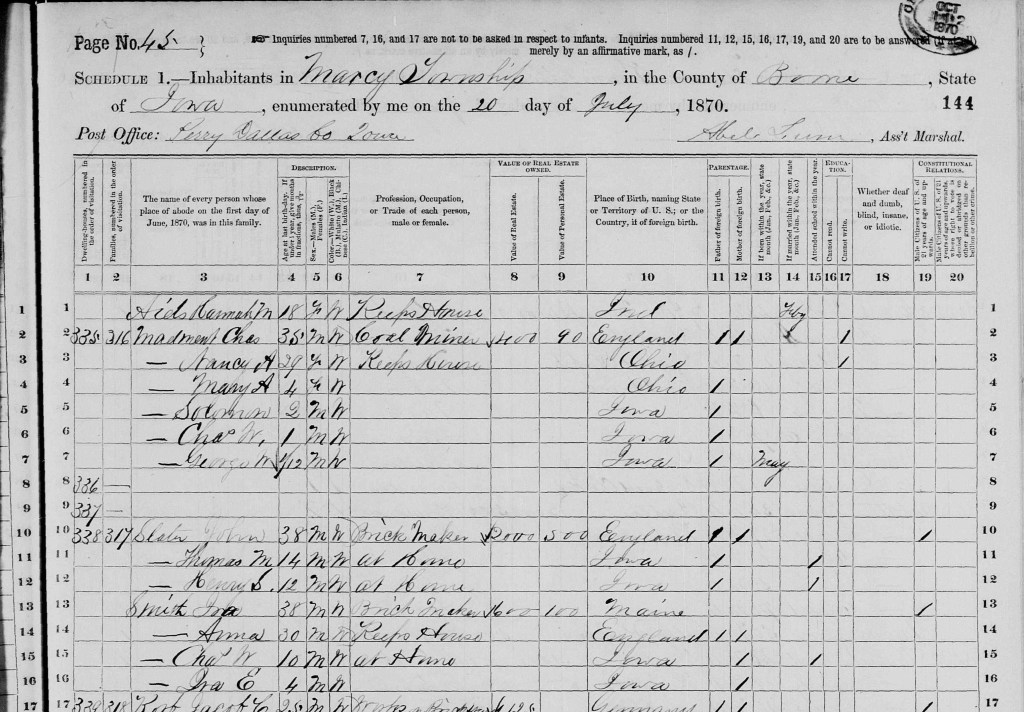 Page No. 45
Inquiries numbered 7, 16, and 17 are not to be asked in respect to infants. Inquiries numbered 11, 12, 15, 16, 17, 19, and 20 are to be answered (if at all)
merely by an affirmative mark, as /.
OCT 1870
SCHEDULE 1.—Inhabitants in Marcy Township, in the County of Boone, State
of Iowa, enumerated by me on the 20 day of July, 1870. 144
Post Office: Perry Dallas Co Iowa , Ass't Marshal.
Dwelling-houses, numbered in the order of visitation.
Families, numbered in the order of visitation.
The name of every person whose place of abode on the first day of June, 1870, was in this family.
DESCRIPTION.
Age at last birth-day. If under 1 year, give months in fractions, thus, 3/12
Sex.—Males (M.), Females (F.)
Color.—White (W.), Black (B.), Mulatto (M.), Chinese (C.), Indian (I.)
Profession, Occupation, or Trade of each person, male or female.
VALUE OF REAL ESTATE OWNED.
Value of Real Estate.
Value of Personal Estate.
Place of Birth, naming State or Territory of U. S.; or the Country, if of foreign birth.
PARENTAGE.
Father of foreign birth.
Mother of foreign birth.
If born within the year, state month (Jan., Feb., &c.)
If married within the year, state month (Jan., Feb., &c.)
Attended school within the year.
EDUCATION.
Cannot read.
Cannot write.
Whether deaf and dumb, blind, insane, or idiotic.
CONSTITUTIONAL RELATIONS.
Male Citizens of U. S. of 21 years of age and upwards.
Male Citizens of U. S. of 21 years of age and upwards, where right to vote is denied or abridged on other grounds than rebellion or other crime.
1 2 3 4 5 6 7 8 9 10 11 12 13 14 15 16 17 18 19 20
1 1 Hannah M 18 F W Keeps House Ind 1
2 2 335 316 Madment Chas 35 M W Coal Miner 400 90 England / / / 2
3 3 — Nancy A 29 F W Keeps House Ohio / 3
4 4 — Mary A 4 F W Ohio / 4
5 5 — Solomon 2 M W Iowa / 5
6 6 — Chas W. 1 M W Iowa / 6
7 7 — George W 1/12 M W Iowa / May 7
8 8 336 — 8
9 9 337 — 9
10 10 338 317 Slater John 38 M W Brick Maker 2000 500 England / / / 10
11 11 — Thomas M. 14 M W at Home Iowa / / 11
12 12 — Henry S. 12 M W at Home Iowa / / 12
13 13 Smith Ira 38 M W Brick Maker 1600 100 Maine / 13
14 14 — Anna 30 W Keeps House England / / 14
15 15 — Chas W 10 M W at Home Iowa / / 15
16 16 — Ira E 4 M W Iowa / 16
17 17 339 318 Jacob C 25 M W Works Germany / / / 17